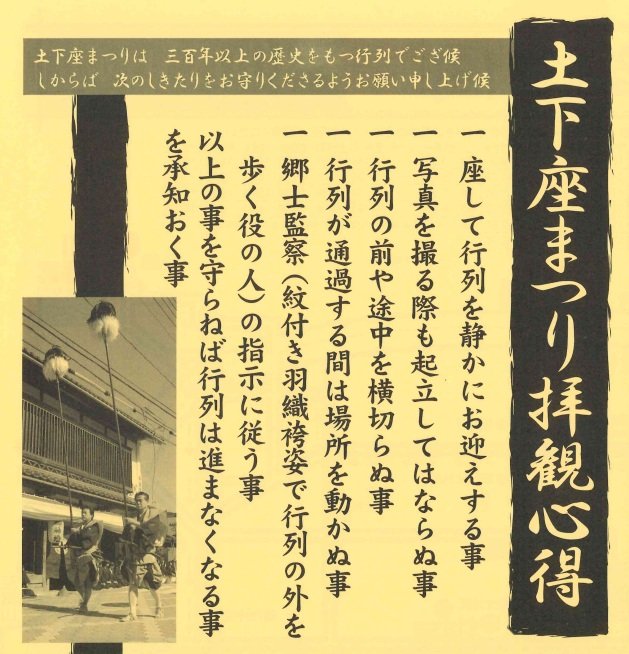 土下座まつり拝観心得
土下座まつりは　三百年以上の歴史をもつ行列でござ候
しからば　次のしきたりをお守りくださるようお願い申し上げ候
一 座して行列を静かにお迎えする事
一 写真を撮る際も起立してはならぬ事
一 行列の前や途中を横切らぬ事
一 行列が通過する間は場所を動かぬ事
一 郷士監察（紋付き羽織袴姿で行列の外を
歩く役の人）の指示に従う事
以上の事を守らねば行列は進まなくなる事
を承知おく事